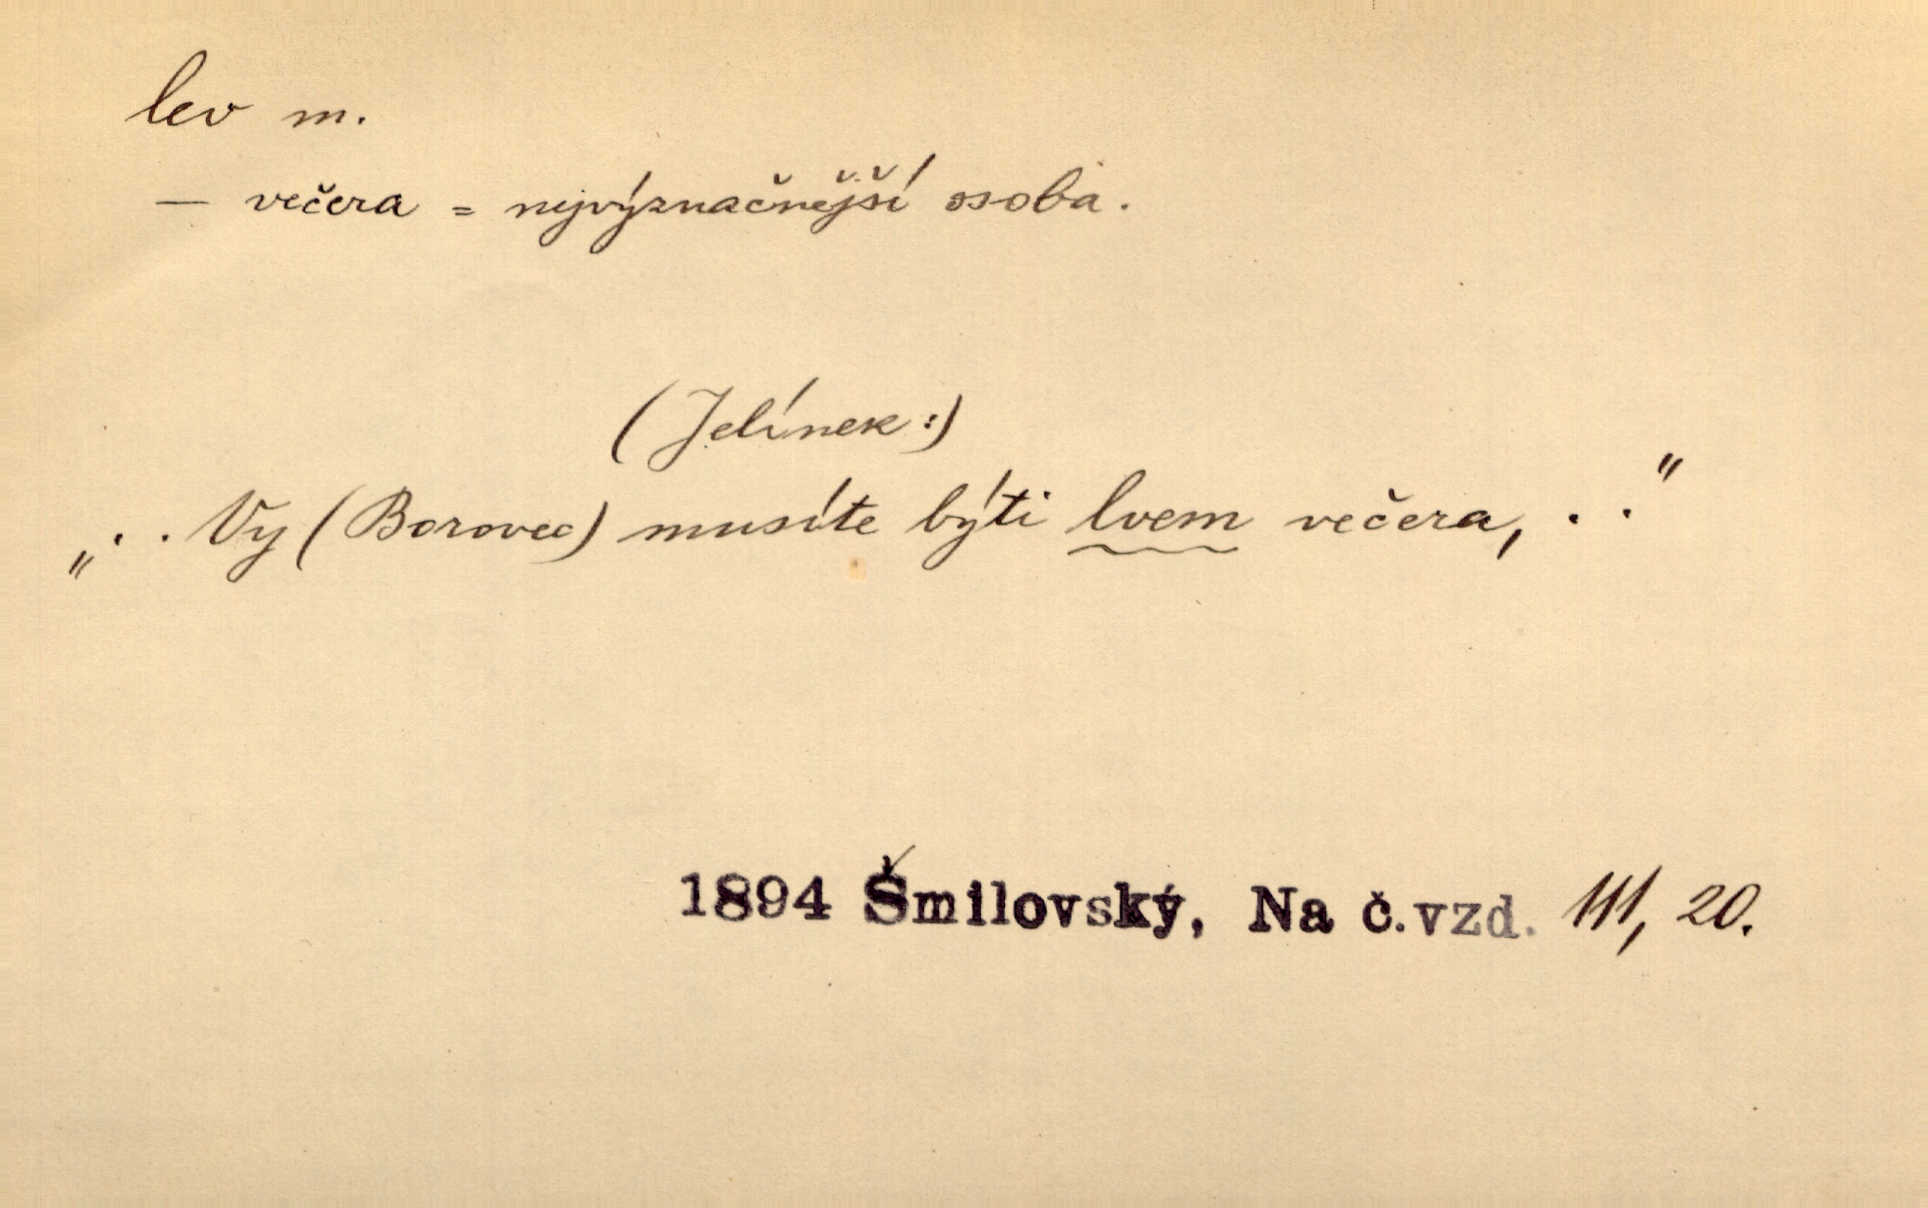 lev m.
— večera = nejvýznačnější osoba.
(Jelínek:)
„. . Vy (Borovec) musíte býti lvem večera, . ."
1894 Šmilovský, Na č.vzd. III, 20.